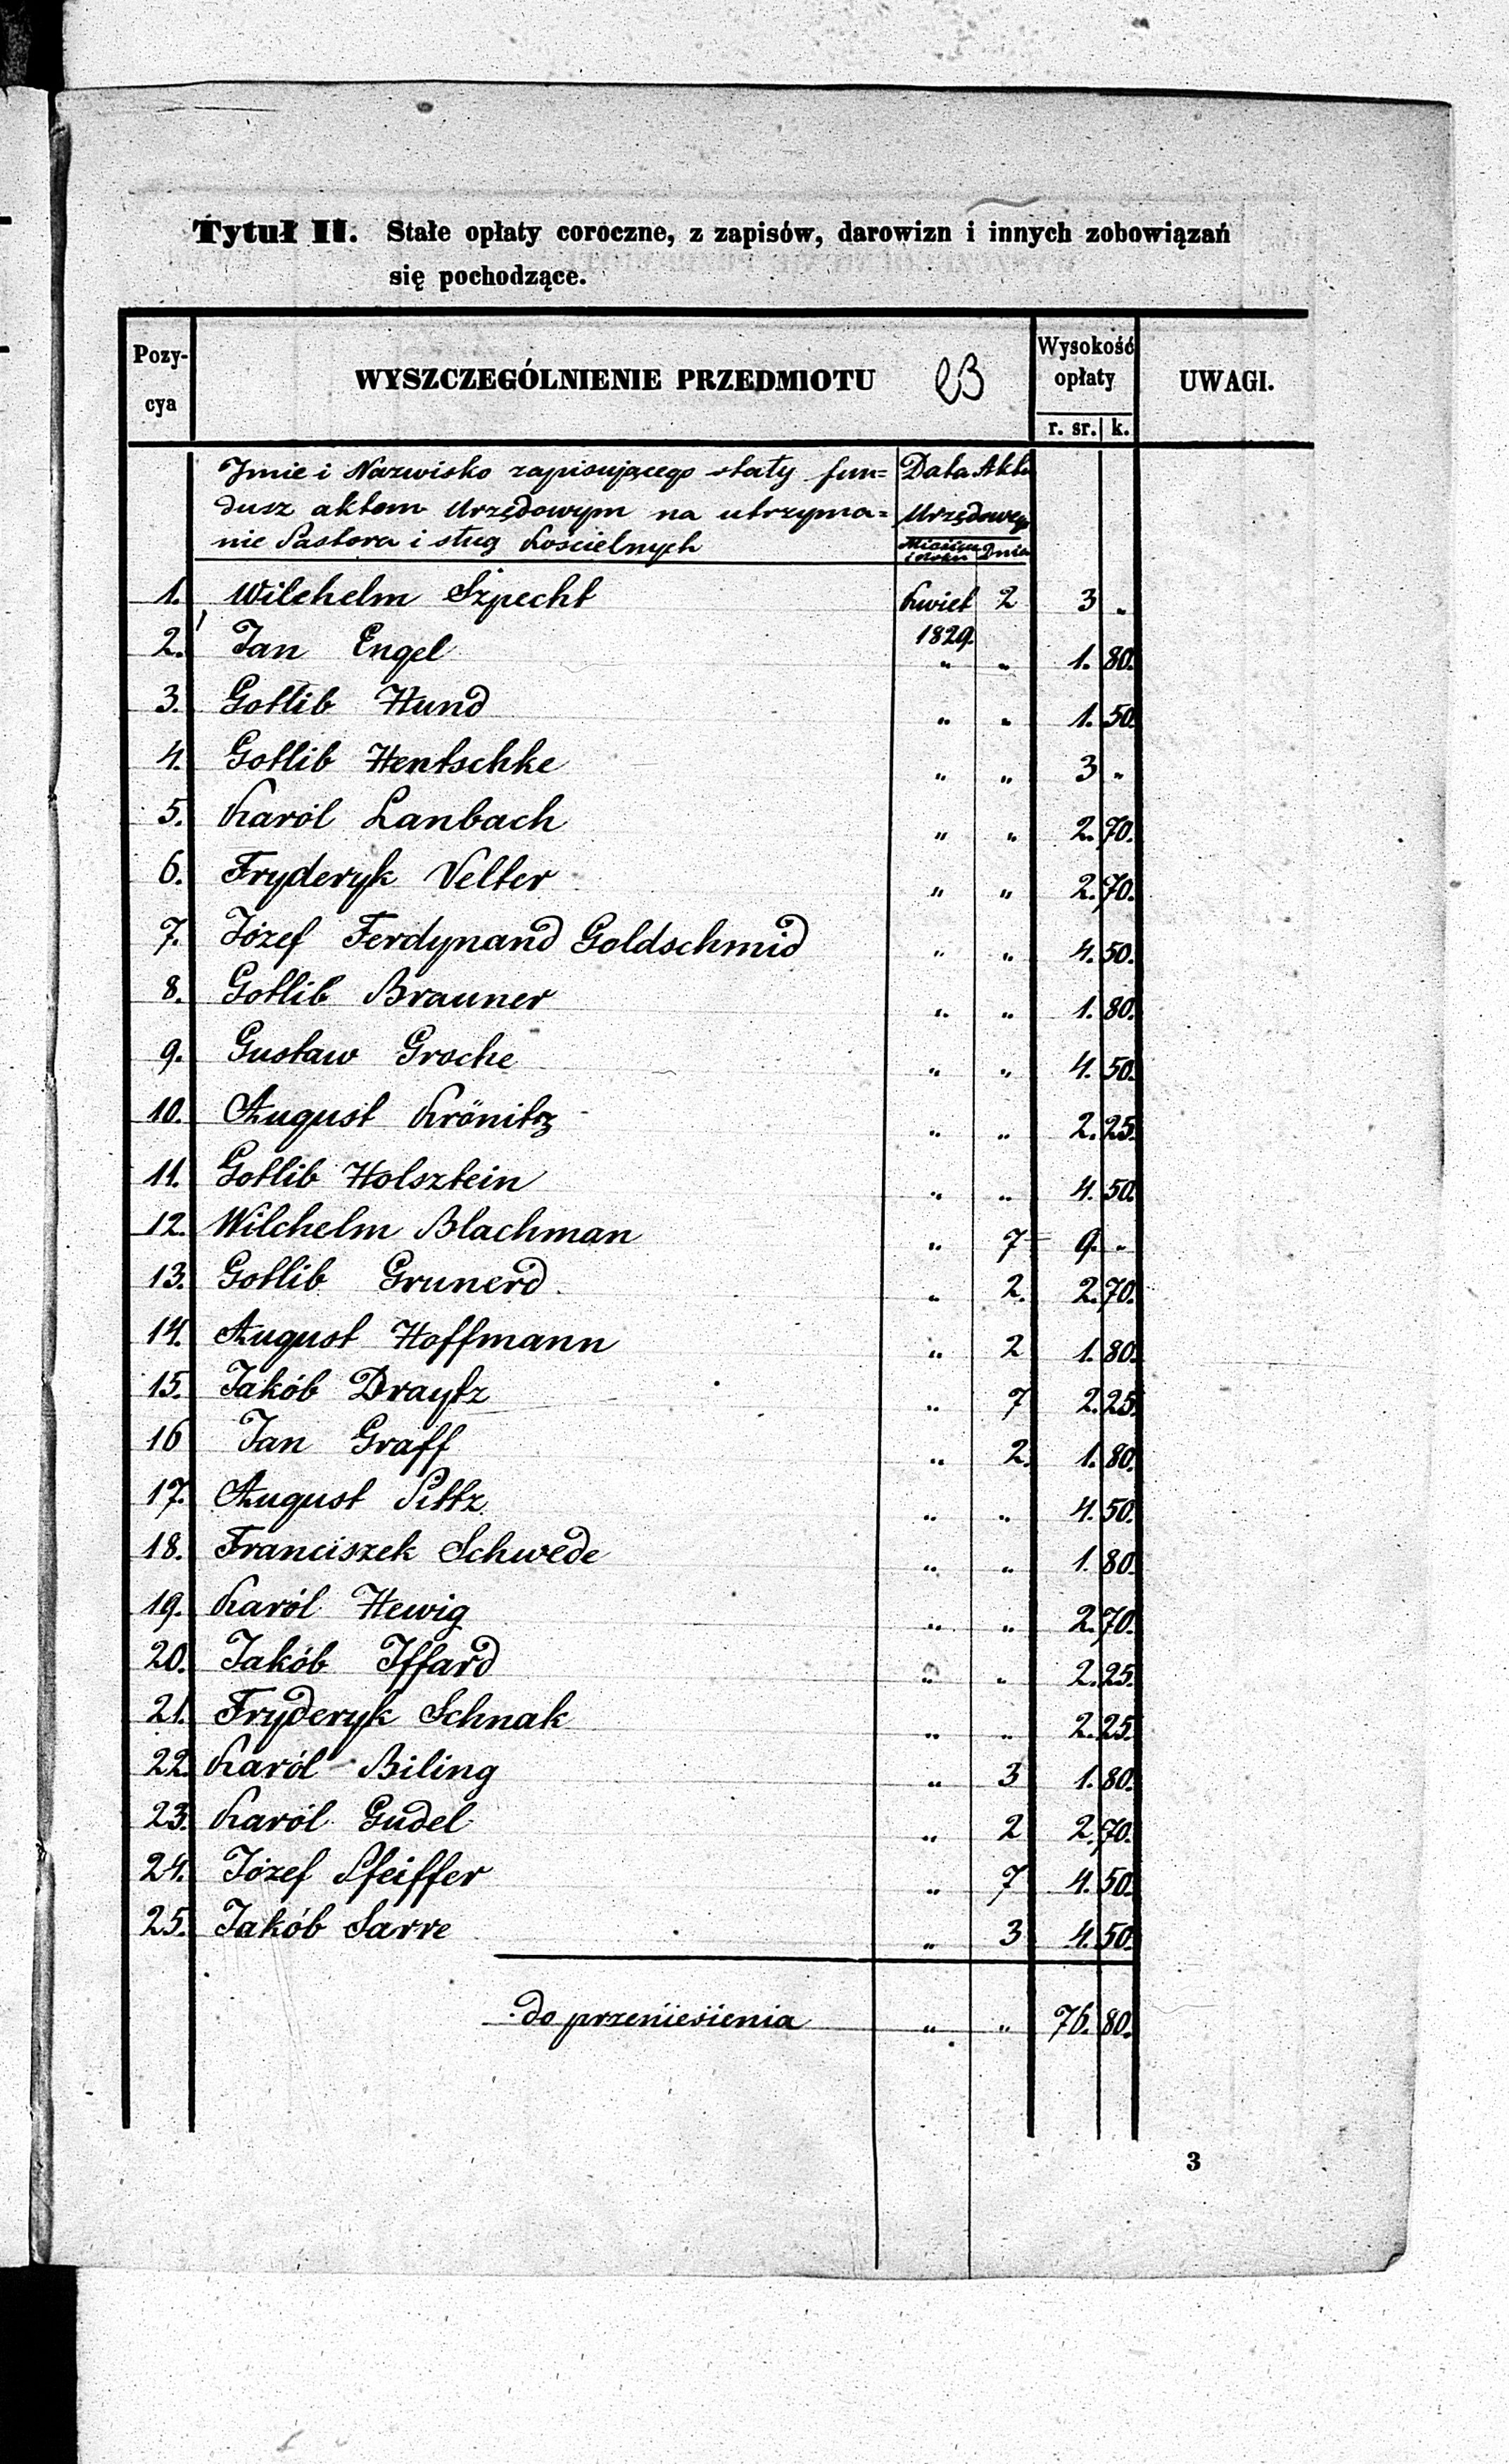 Tytuł II. Stałe opłaty coroczne, z zapisów, darowizn i innych zobowiązań
się pochodzące.
Pozy-
cya
WYSZCZEGÓLNIENIE PRZEDMIOTU
Wysokość
opłaty
r. sr. k.
UWAGI.
Imie i Nazwisko zapisującego stały fun=
dusz aktem Urzędowym na utrzyma=
nie Pastora i sług Kościelnych
Data Aktu
Urzędowego
Miesiąc i Roku Dnia
1. Wilchelm Szpecht Kwiet 2 3 „
1829.
2. Jan Engel „ „ 1. 80.
3. Gotlib Hund „ „ 1. 50.
4. Gotlib Hentschke „ „ 3 „
5. Karól Lanbach „ „ 2. 70.
6. Fryderyk Velter „ „ 2. 70.
7. Józef Ferdynand Goldschmid „ „ 4. 50.
8. Gotlib Brauner „ „ 1. 80.
9. Gustaw Groche „ „ 4. 50.
10. August Krönitz „ „ 2. 25.
11. Gotlib Holsztein „ „ 4. 50.
12. Wilchelm Blachman „ 7 9. „
13. Gotlib Grunerd „ 2. 2. 70.
14. August Hoffmann „ 2 1. 80.
15. Jakób Draytz „ 7 2. 25.
16 Jan Graff „ 2. 1. 80.
17. August Pittz „ „ 4. 50.
18. Franciszek Schwede „ „ 1. 80.
19. Karól Hewig „ „ 2. 70.
20. Jakób Iffard „ „ 2. 25.
21. Fryderyk Schnak „ „ 2. 25.
22. Karól Biling „ 3 1. 80.
23. Karól Gudel „ 2 2. 70.
24. Józef Pfeiffer „ 7 4. 50.
25. Jakób Sarre „ 3 4. 50.
do przeniesienia „ „ 76. 80.
3